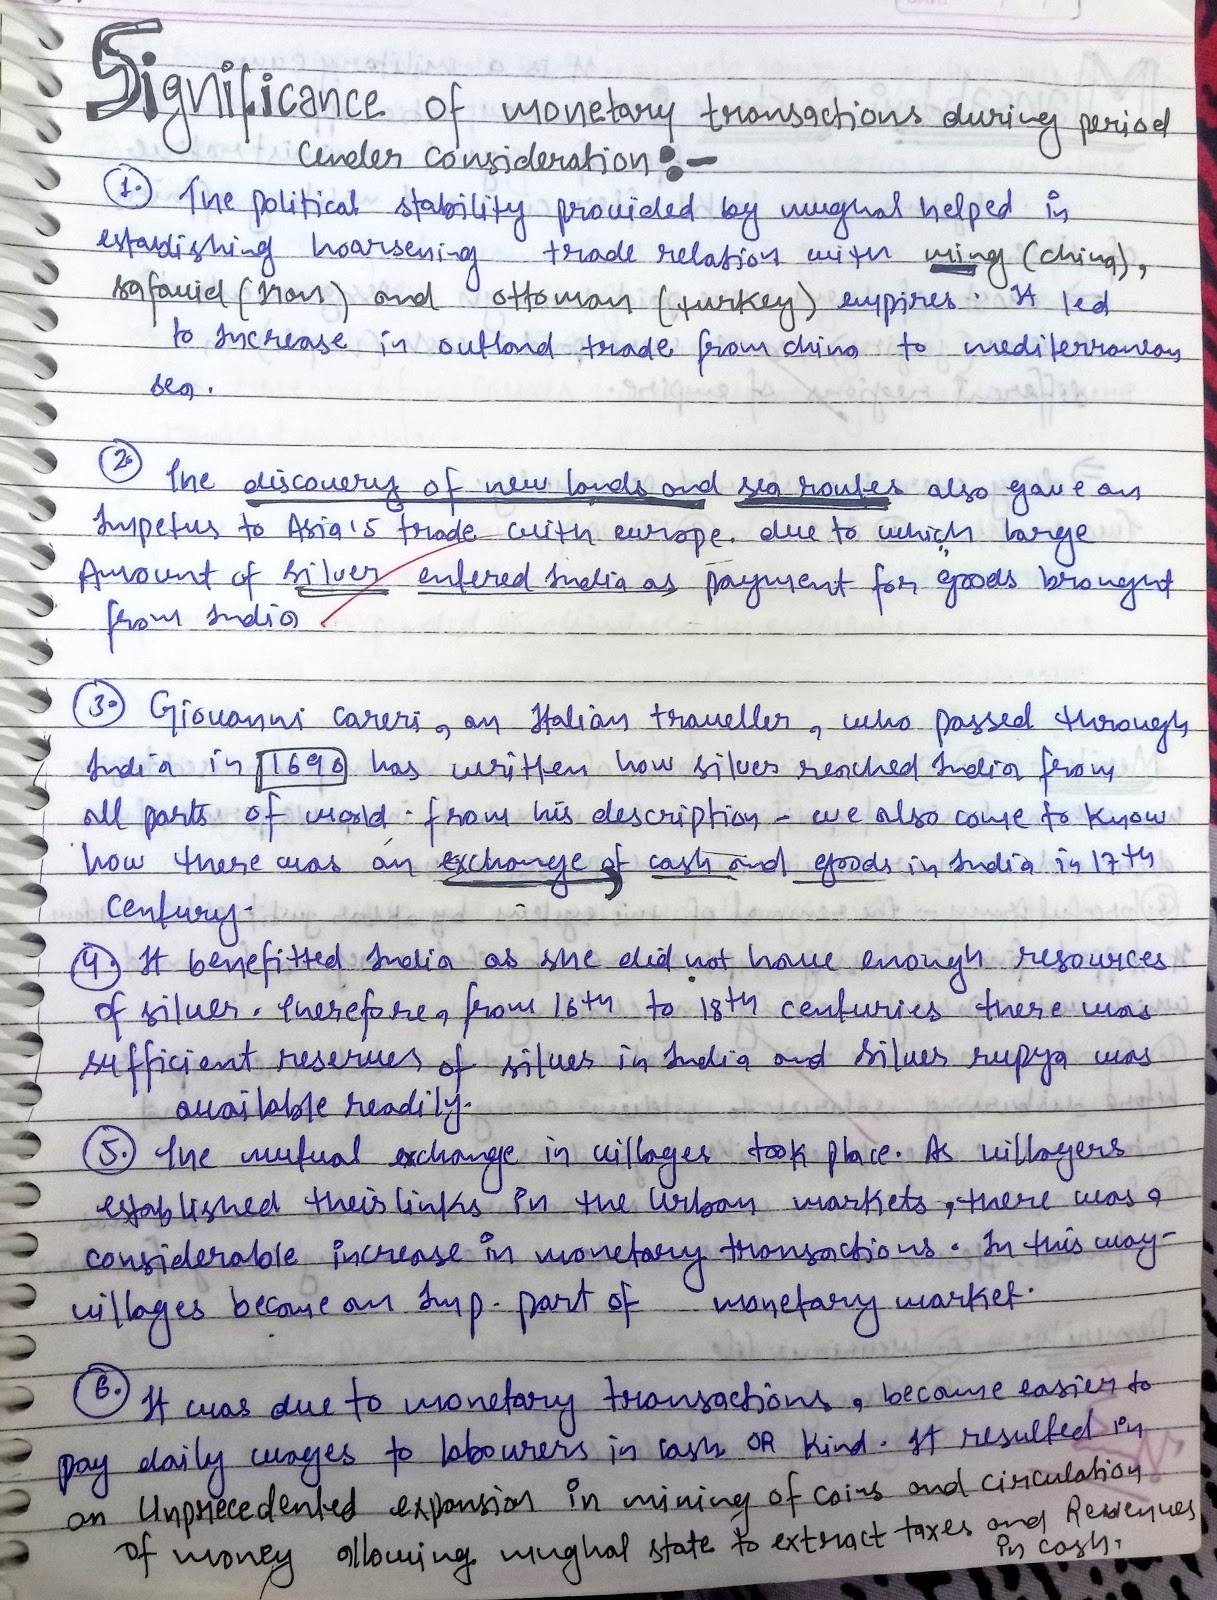 Significance of monetary transactions during period
under consideration:-
1. The political stability provided by mughal helped in
establishing trade relation with ming (china),
safavid (Iran) and ottoman (turkey) empires. It led
to Increase in outland trade from china to mediterranean
sea.
2. The discovery of new lands and sea routes also gave an
Impetus to Asia's trade with europe. due to which large
Amount of silver entered India as payment for goods brought
from India
3. Giovanni careri, an Italian traveller, who passed through
India in 1690 has written how silver reached India from
all parts of world. from his description - we also come to know
how there was an exchange of cash and goods in India in 17th
century.
4. It benefitted India as she did not have enough resources
of silver. therefore, from 16th to 18th centuries there was
sufficient reserves of silver in India and silver rupya was
available readily.
5. The mutual exchange in villages took place. As villagers
established their links in the urban markets, there was a
considerable increase in monetary transactions. In this way-
villages became an Imp. part of monetary market.
6. It was due to monetary transactions, became easier to
pay daily wages to labourers in cash OR kind. It resulted in
an Unprecedented expansion in mining of coins and circulation
of money allowing mughal state to extract taxes and Revenues
in cash.